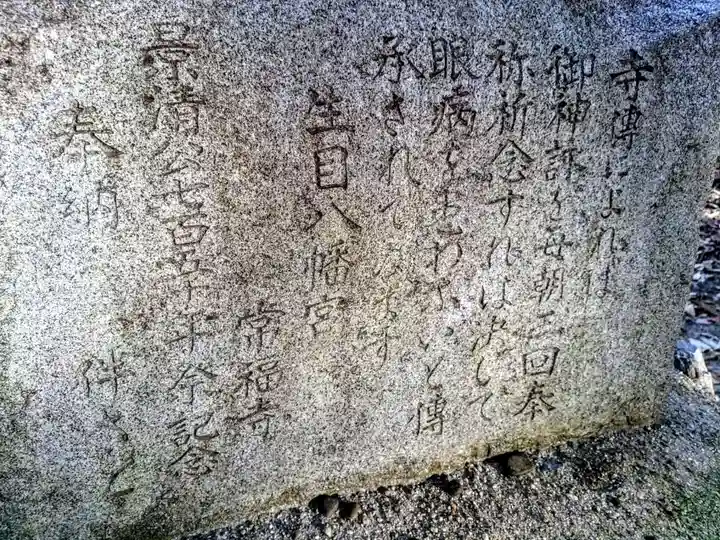 寺傳によれば
御神詠を毎朝三回奉
祢祈念すれば決して
眼病をまわないと傳
承されております
生目八幡宮
常福寺
景清公七百五十年令記念
奉納 伴